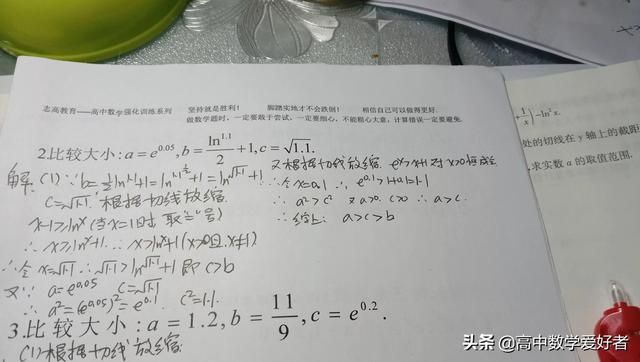 志高教育——高中数学强化训练系列 坚持就是胜利! 脚踏实地才不会跌倒! 相信自己可以做得更好.
做数学题时,一定要敢于尝试,一定要细心,不能粗心大意,计算错误一定要避免.
2.比较大小:a=e^{0.05},b=\frac{ln^{1.1}}{2}+1,c=√1.1.
解:(1)∵b=½ln^{1.1}+1=ln^{1.1^{½}}+1=ln^{√1.1}+1
c=√1.1.根据切线放缩
x-1≥ln^x(当x=1时取"="号)
∴x≥ln^x+1.∴x>ln^x+1(x>0且x≠1)
∴令x=√1.1∴√1.1>ln^{√1.1}+1即c>b
又∵a=e^{0.05} c=√1.1
∴a²=(e^{0.05})²=e^{0.1}.c²=1.1.
又根据切线放缩.e^x>x+1对x>0恒成立
∴令x=0.1∴e^{0.1}>1+0.1=1.1
∴a²>c² 又a>0.c>0∴a>c.
∴综上:a>c>b
3.比较大小:a=1.2,b=\frac{11}{9},c=e^{0.2}.
(1)根据切线放缩
\frac{1}{x})-ln²x.
处的切线在y轴上的截距
,求实数a的取值范围.
头条@高中数学爱好者